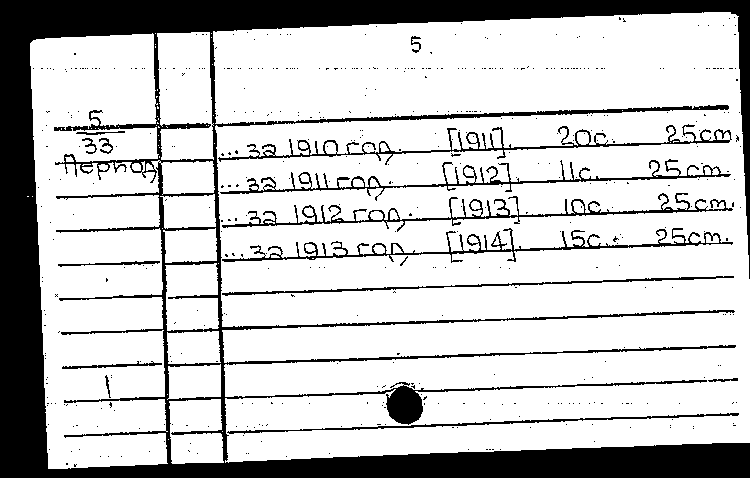 5.
5
33
Период
... за 1910 год. [1911]. 20с. 25cm.
... за 1911 год. [1912]. 11с. 25cm.
... за 1912 год. [1913]. 10с. 25cm.
... за 1913 год. [1914]. 15с. 25cm.